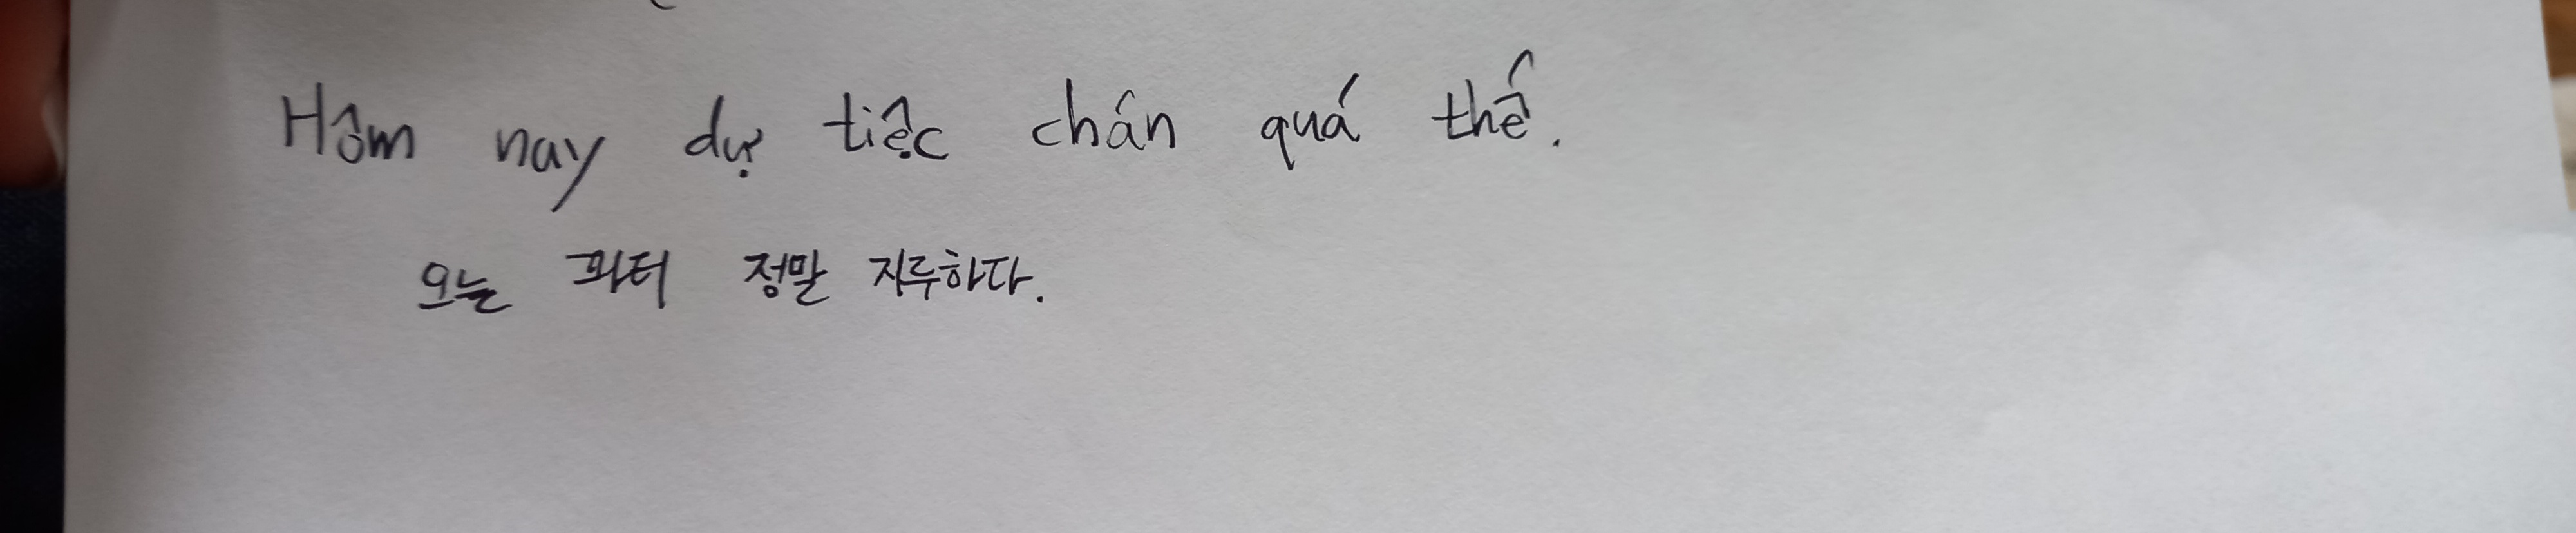 Hôm nay dự tiệc chán quá thế.
오늘 파터 정말 지루하다.